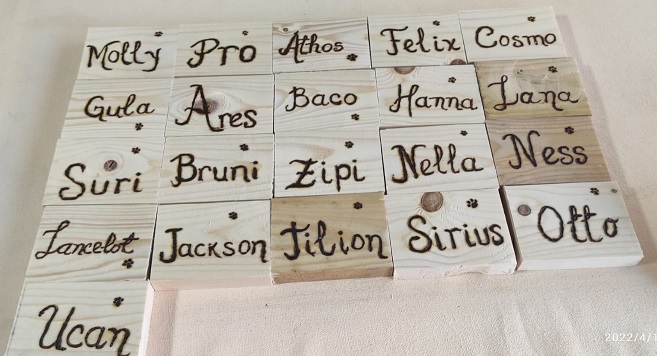 Molly Pro Athos Felix Cosmo
Gula Ares Baco Hanna Lana
Suri Bruni Zipi Nella Ness
Lancelot Jackson Tilion Sirius Otto
Ucan